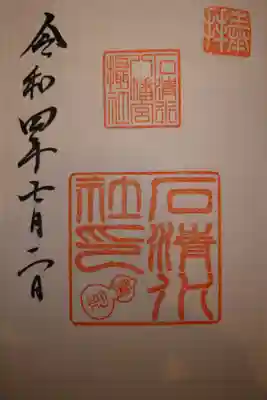 奉拝
石清水
八幡宮
摂社
石清水
社印
令和四年七月二日